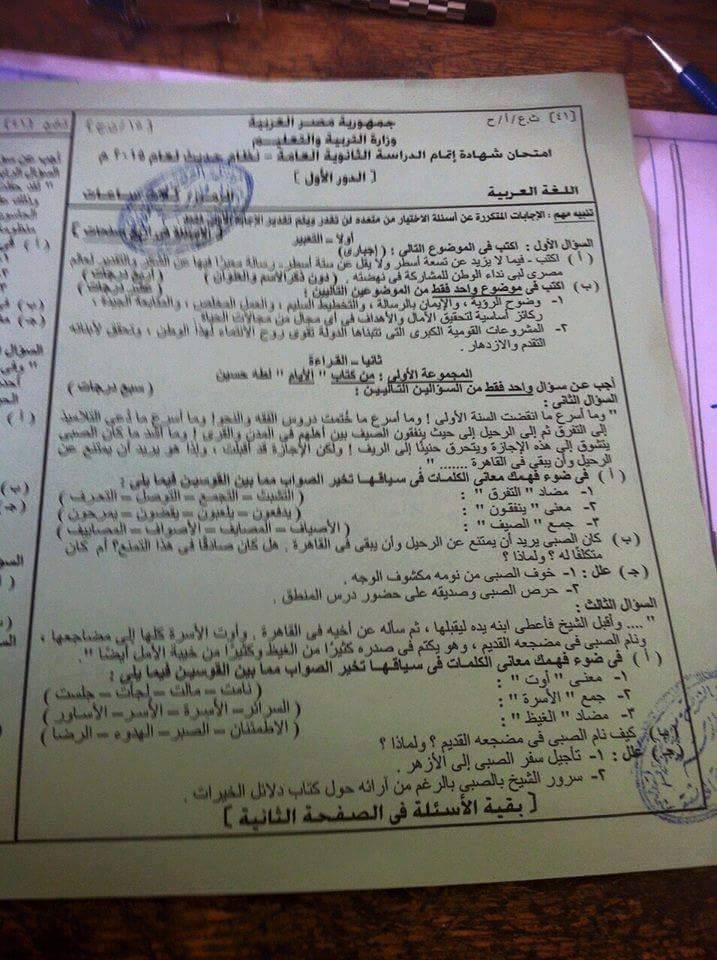 [٤١] ث.ع/أ/ح
جمهورية مصر العربية
وزارة التربية والتعليم
امتحان شهادة إتمام الدراسة الثانوية العامة – نظام حديث لعام ٢٠١٥ م
[ الدور الأول ]
اللغة العربية
تنبيه مهم : الإجابات المتكررة عن أسئلة الاختيار من متعدد لن تقدر ويتم تقدير الإجابة الأولى فقط
أولا – التعبير
السؤال الأول : اكتب فى الموضوع التالى : ( إجبارى )
( أ ) اكتب – فيما لا يزيد عن تسعة أسطر ولا يقل عن ستة أسطر – رسالة معبرًا فيها عن الشكر والتقدير لعالم
مصرى لبى نداء الوطن للمشاركة فى نهضته ( دون ذكر الاسم والعنوان ) ( أربع درجات )
(ب) اكتب فى موضوع واحد فقط من الموضوعين التاليين : ( عشر درجات )
١- وضوح الرؤية ، والإيمان بالرسالة ، والتخطيط السليم ، والعمل المخلص ، والمتابعة الجيدة ،
ركائز أساسية لتحقيق الآمال والأهداف فى أى مجال من مجالات الحياة
٢- المشروعات القومية الكبرى التى تتبناها الدولة تقوى روح الانتماء لهذا الوطن ، وتحقق لأبنائه
التقدم والازدهار .
ثانيا – القراءة
المجموعة الأولى : من كتاب " الأيام " لطه حسين
أجب عن سؤال واحد فقط من السؤالين التاليين : ( سبع درجات )
السؤال الثانى :
" وما أسرع ما انقضت السنة الأولى ! وما أسرع ما خُتمت دروس الفقه والنحو! وما أسرع ما دُعى التلاميذ
إلى التفرق ثم إلى الرحيل إلى حيث ينفقون الصيف بين أهلهم فى المدن والقرى ! وما أشد ما كان الصبى
يتشوق إلى هذه الإجازة ويتحرق حنينًا إلى الريف ! ولكن الإجازة قد أقبلت ، وإذا هو يريد أن يمتنع عن
الرحيل وأن يبقى فى القاهرة ....... "
( أ ) فى ضوء فهمك معانى الكلمات فى سياقها تخير الصواب مما بين القوسين فيما يلى :
١- مضاد " التفرق " : ( التثبت – التجمع – التوصل – التعرف )
٢- معنى " ينفقون " : ( يدفعون – يلعبون – يقضون – يمرحون )
٣- جمع " الصيف " : ( الأصياف – المصايف – الأصواف – المصابيف )
(ب) كان الصبى يريد أن يمتنع عن الرحيل وأن يبقى فى القاهرة . هل كان صادقًا فى هذا التمنع؟ أم كان
متكلفًا له ؟ ولماذا ؟
(جـ) علل : ١- خوف الصبى من نومه مكشوف الوجه .
٢- حرص الصبى وصديقه على حضور درس المنطق .
السؤال الثالث :
" .... وأقبل الشيخ فأعطى ابنه يده ليقبلها ، ثم سأله عن أخيه فى القاهرة . وأوت الأسرة كلها إلى مضاجعها ،
ونام الصبى فى مضجعه القديم ، وهو يكتم فى صدره كثيرًا من الغيظ وكثيرًا من خيبة الأمل أيضًا " .
( أ ) فى ضوء فهمك معانى الكلمات فى سياقها تخير الصواب مما بين القوسين فيما يلى :
١- معنى " أوت " : ( نامت – مالت – لجأت – جلست )
٢- جمع " الأسرة " : ( السرائر – الأسرة – الأسر – الأساور )
٣- مضاد " الغيظ " : ( الاطمئنان – الصبر – الهدوء – الرضا )
(ب) كيف نام الصبى فى مضجعه القديم ؟ ولماذا ؟
(جـ) علل : ١- تأجيل سفر الصبى إلى الأزهر .
٢- سرور الشيخ بالصبى بالرغم من آرائه حول كتاب دلائل الخيرات .
[ بقية الأسئلة فى الصفحة الثانية ]